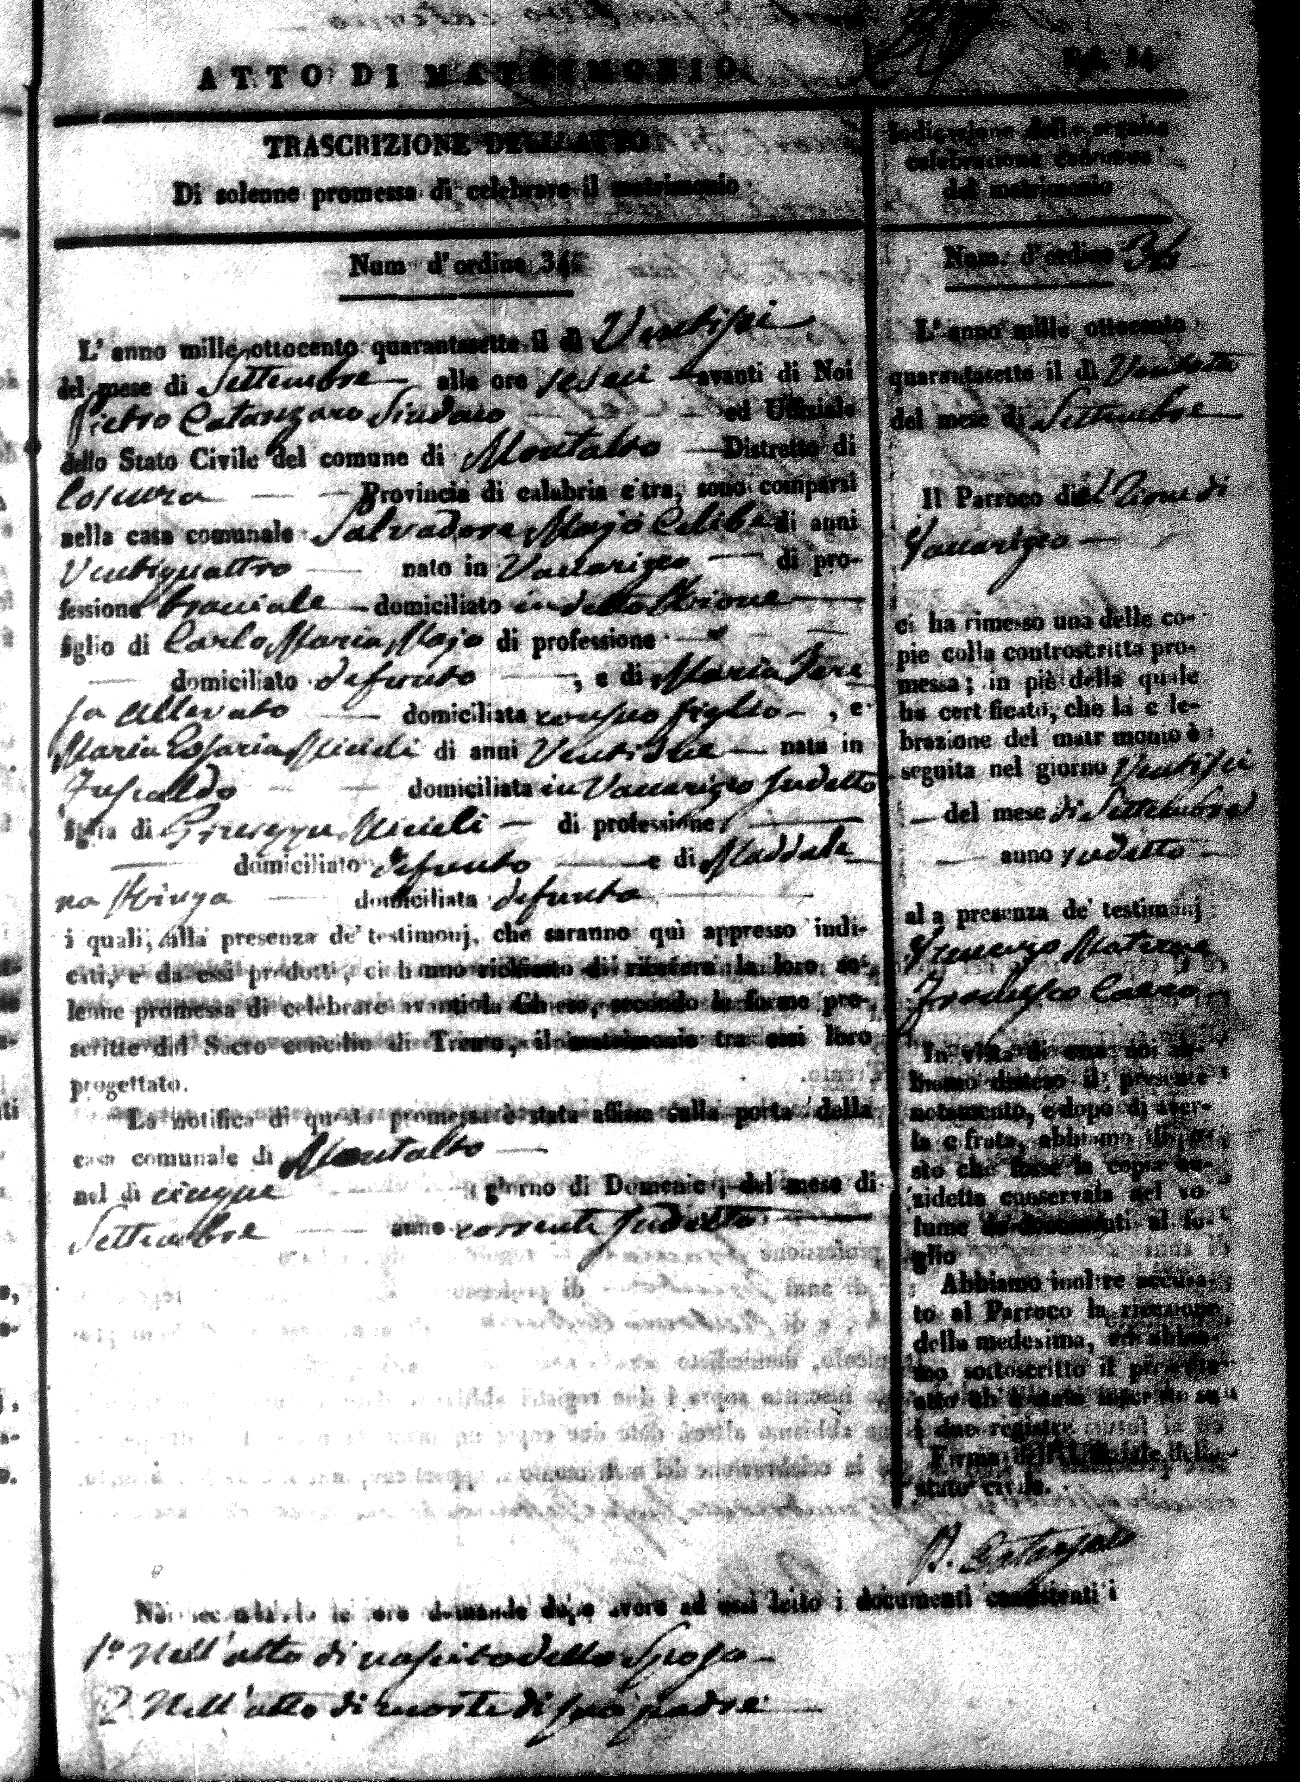 ATTO DI MATRIMONIO
TRASCRIZIONE DELL' ATTO
Di solenne promessa di celebrare il matrimonio
Num d'ordine
L' anno mille ottocento quarantasette il dì Ventisei
del mese di Settembre alle ore sedeci avanti di Noi
Pietro Catanzaro Sindaco ed Uffiziale
dello Stato Civile del comune di Montalto Distretto di
Cosenza Provincia di calabria citra, sono comparsi
nella casa comunale Salvadore Majo Celibe di anni
Ventiquattro nato in Vaccarizzo di pro-
fessione bracciale domiciliato in detto Rione
figlio di Carlo Maria Majo di professione
domiciliato defunto , e di Maria Tere
sa Allevato domiciliata con suo figlio , e
Maria Miceli di anni Ventidue nata in
Fuscaldo domiciliata in Vaccarizzo sudetto
figlia di Giuseppe Miceli di professione
domiciliato defunto e di Maddale
na domiciliata defunta
i quali, alla presenza de' testimonj, che saranno quì appresso indi-
cati, e da essi prodotti, ci hanno richiesto di ricevere la loro so-
lenne promessa di celebrare avanti la Chiesa, secondo le forme pre-
scritte dal Sacro concilio di Trento, il matrimonio tra essi loro
progettato.
La notifica di questa promessa è stata affissa sulla porta della
casa comunale di Montalto
nel dì cinque giorno di Domenica, del mese di
Settembre anno corrente sudetto
Indicazione della seguita
celebrazione canonica
del matrimonio
Num. d'ordine
L' anno mille ottocento
quarantasette il dì
del mese di Settembre
Il Parroco di
Vaccarizzo
ci ha rimesso una delle co-
pie colla controscritta pro-
messa; in piè della quale
ha certificato, che la cele-
brazione del matrimonio è
seguita nel giorno Ventisei
del mese di Settembre
anno sudetto
alla presenza de' testimonj
Francesco
In vista di essa noi ab-
biamo disteso il presente
notamento, e dopo di aver-
la cifrata, abbiamo dispo-
sto che fosse la copia su-
ridetta conservata nel vo-
lume de documenti al fo-
glio
Abbiamo inoltre accusa-
to al Parroco la ricezione
della medesima, ed abbia-
mo sottoscritto il presente
atto ch' è stato inscritto su
i due registri
Firma dell' Uffiziale dello
stato civile.
P. Catanzaro
Noi secondando le loro domande dopo avere ad essi letto i documenti consistenti
1º Nell' atto di nascita dello Sposo
2 Nell' atto di morte di suo padre